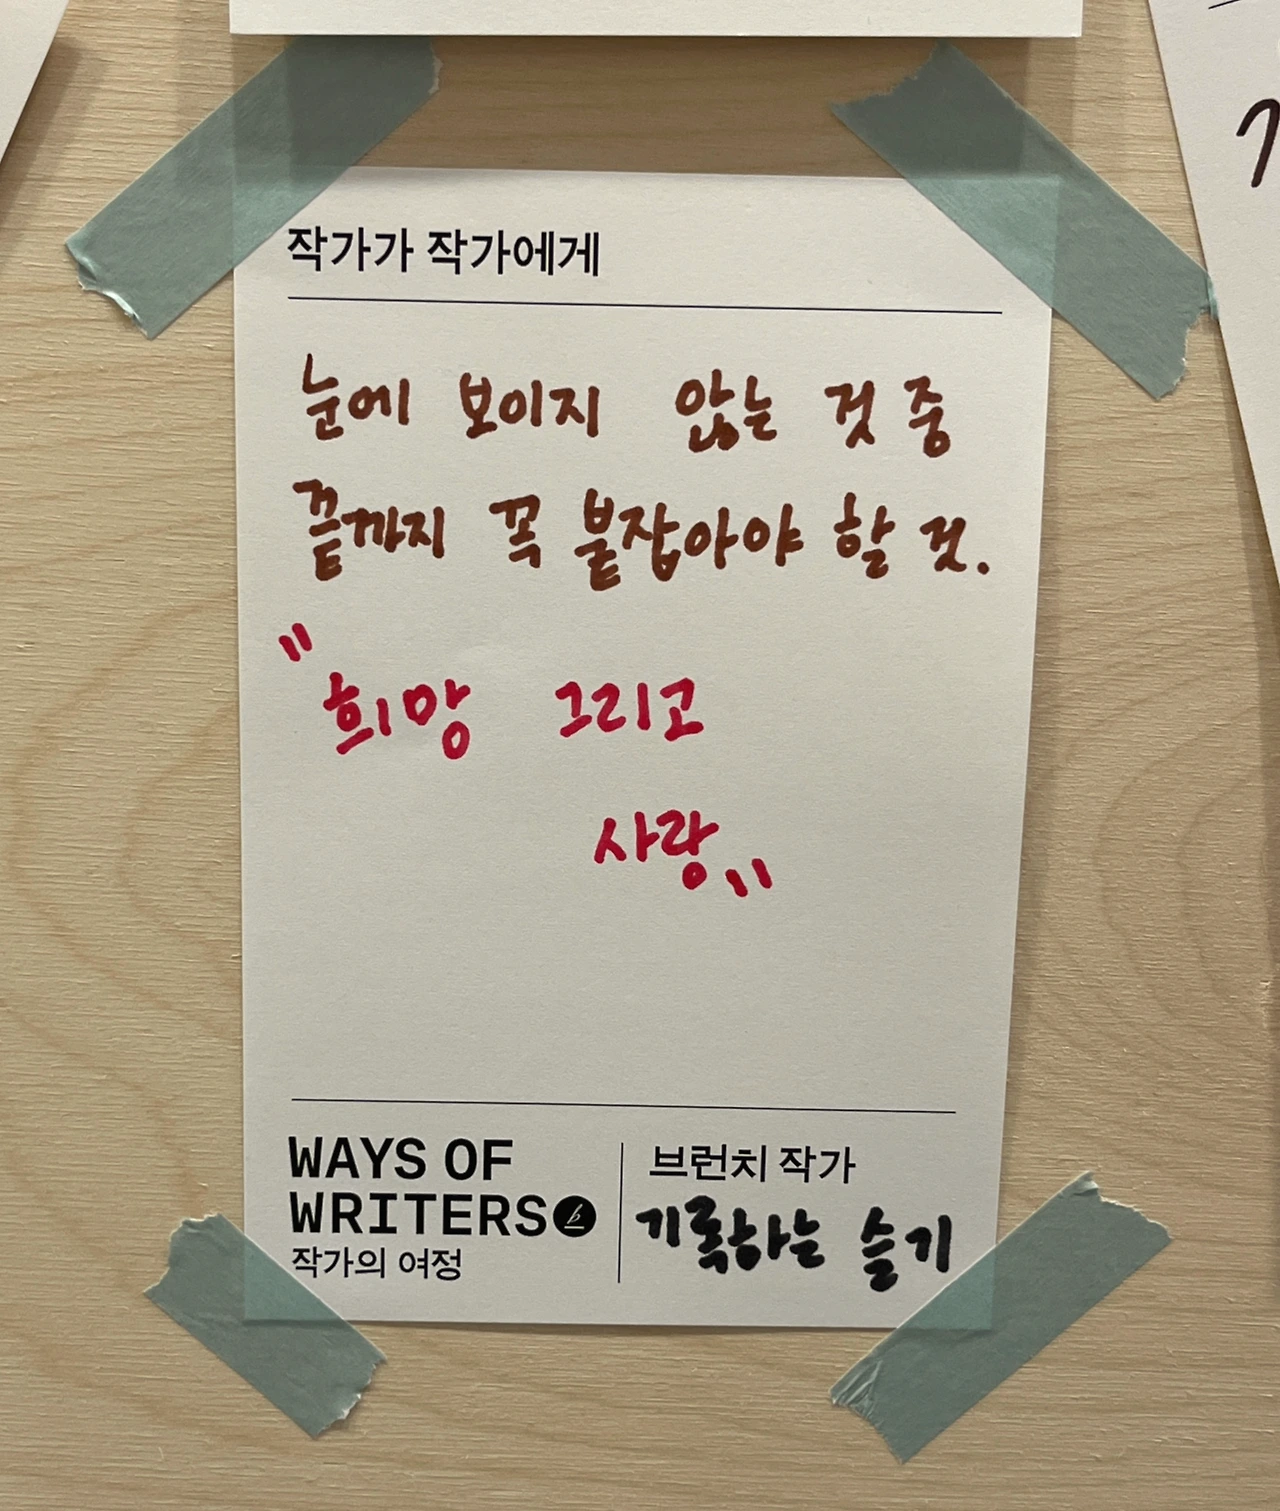 작가가 작가에게
눈에 보이지 않는 것 중
끝까지 꼭 붙잡아야 할 것.
"희망 그리고
사랑"
WAYS OF
WRITERS
작가의 여정
브런치 작가
기록하는 슬기